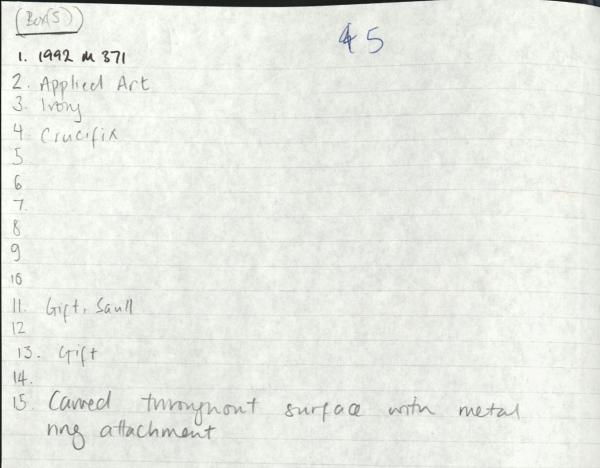 Box(5)
45
1. 1992 M 371
2. Applied Art
3. Ivory
4. Crucifix
5
6
7.
8
9
10
11. Gift, Saull
12
13. Gift
14.
15. Carved throughout surface with metal
ring attachment